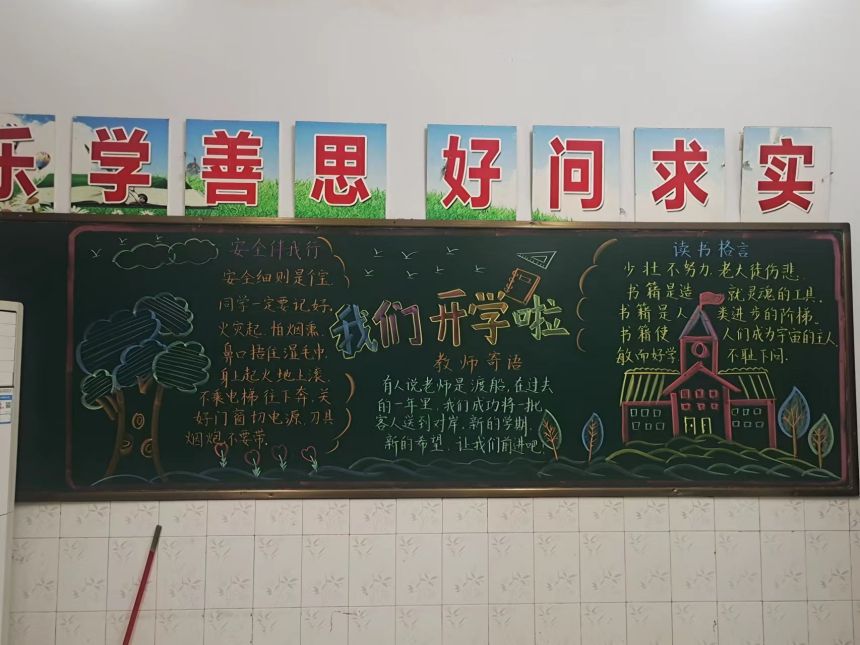 乐学善思 好问求实
安全伴我行
安全细则是个宝.
同学一定要记好.
火灾起.怕烟熏.
鼻口捂住湿毛巾.
身上起火地上滚.
不乘电梯往下奔.关
好门窗切电源.刀具
烟炮不要带.
我们开学啦
教师寄语
有人说老师是渡船,在过去
的一年里,我们成功将一批
客人送到对岸.新的学期.
新的希望.让我们前进吧!
读书格言
少壮不努力,老大徒伤悲.
书籍是造就灵魂的工具.
书籍是人类进步的阶梯.
书籍使人们成为宇宙的主人.
敏而好学,不耻下问.